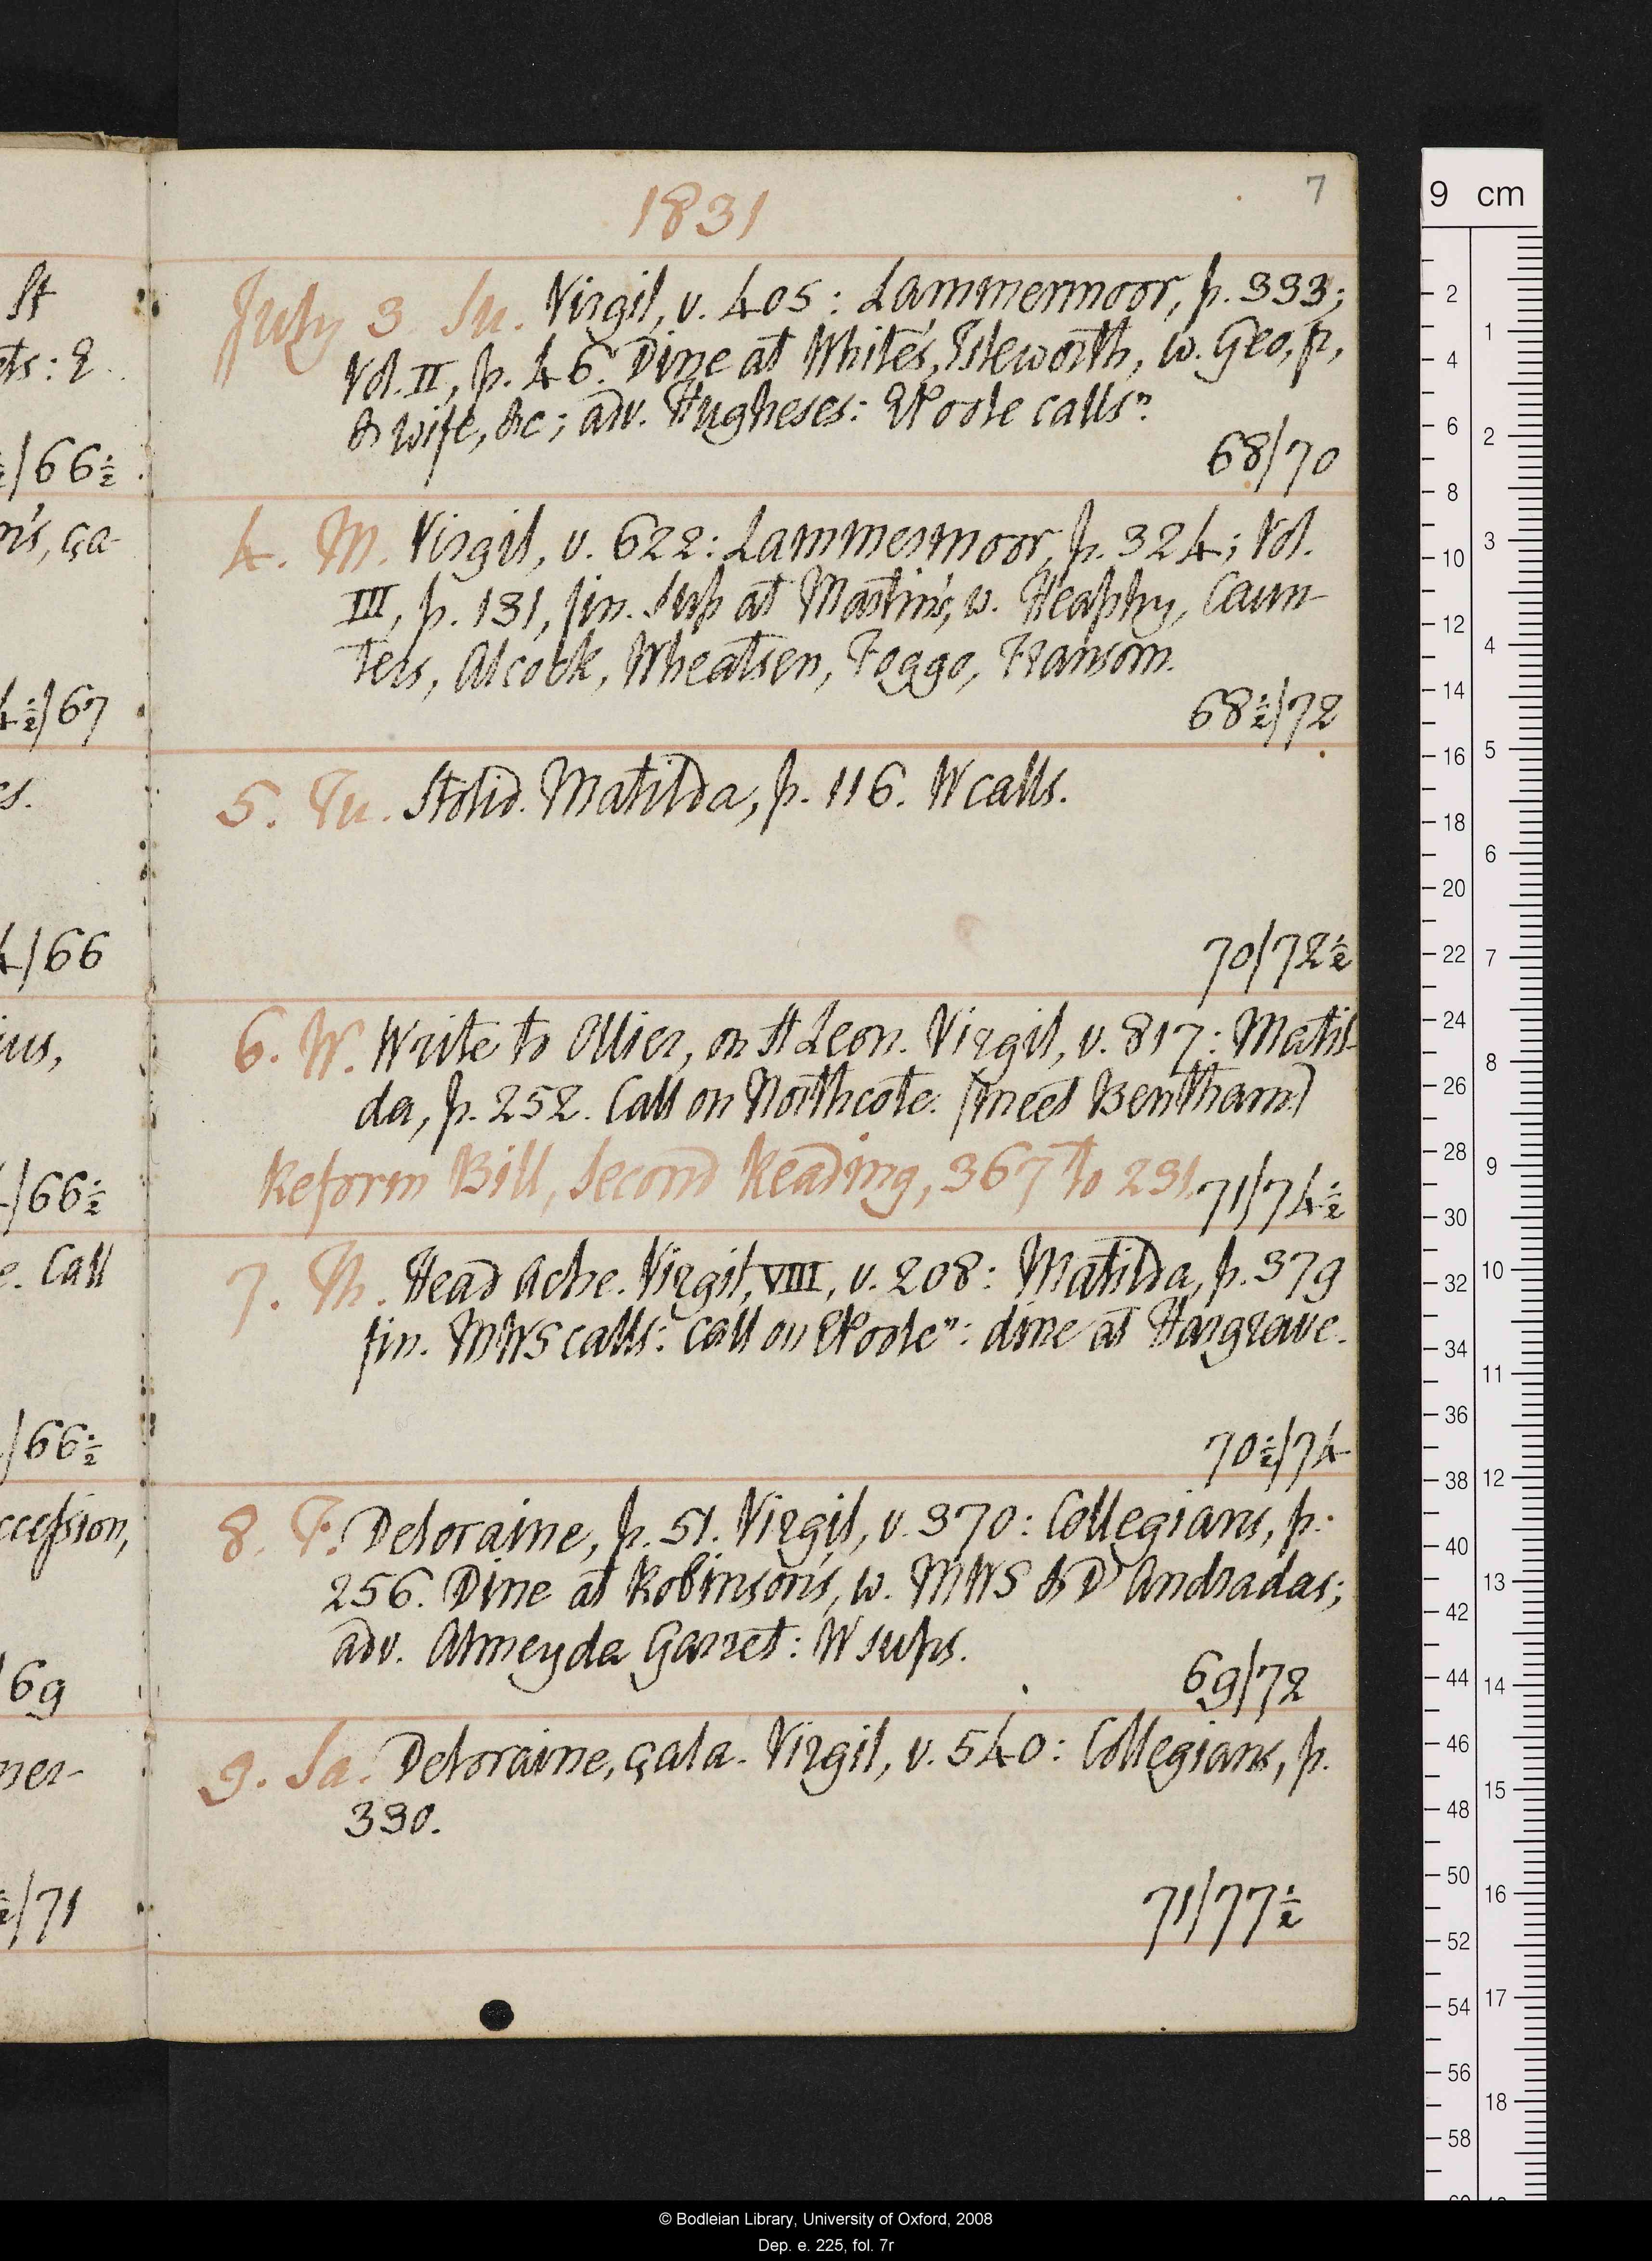 1831
7
July 3. Su. Virgil, v. 405: Lammermoor, p. 333;
Vol. II, p. 46. Dine at White's, Isleworth, w. Geo, p,
& wife, &c; adv. Hugheses: EPoole callsⁿ.
68/70
4. M. Virgil, v. 622: Lammermoor, p. 324; Vol.
III, p. 131, fin. Sup at Martin's, w. Heaphy, Caun-
ters, Alcock, Wheatsen, Foggo, Fransom.
68½/72
5. Tu. Stolid. Matilda, p. 116. W calls.
70/72½
6. W. Write to Ollier, on St Leon. Virgil, v. 817: Matil-
da, p. 252. Call on Northcote. (meet Bentham)
Reform Bill, Second Reading, 367 to 231.
71/74½
7. Th. Head Ache. Virgil, VIII, v. 208: Matilda, p. 379
fin. MWS calls: call on EPooleⁿ: dine at Hargrave.
70½/74
8. F. Deloraine, p. 51. Virgil, v. 370: Collegians, p.
256. Dine at Robinson's, w. MWS & D'Andradas;
adv. Almeyda Garret: W sups.
69/72
9. Sa. Deloraine, çala. Virgil, v. 540: Collegians, p.
330.
71/77½
St
/66½
n's, ça-
½/67
/66
ius,
/66½
e. Call
/66½
ccession,
69
mer-
/71
9 cm
2
4
6
8
10
12
14
16
18
20
22
24
26
28
30
32
34
36
38
40
42
44
46
48
50
52
54
56
58
1
2
3
4
5
6
7
8
9
10
11
12
13
14
15
16
17
18
© Bodleian Library, University of Oxford, 2008
Dep. e. 225, fol. 7r